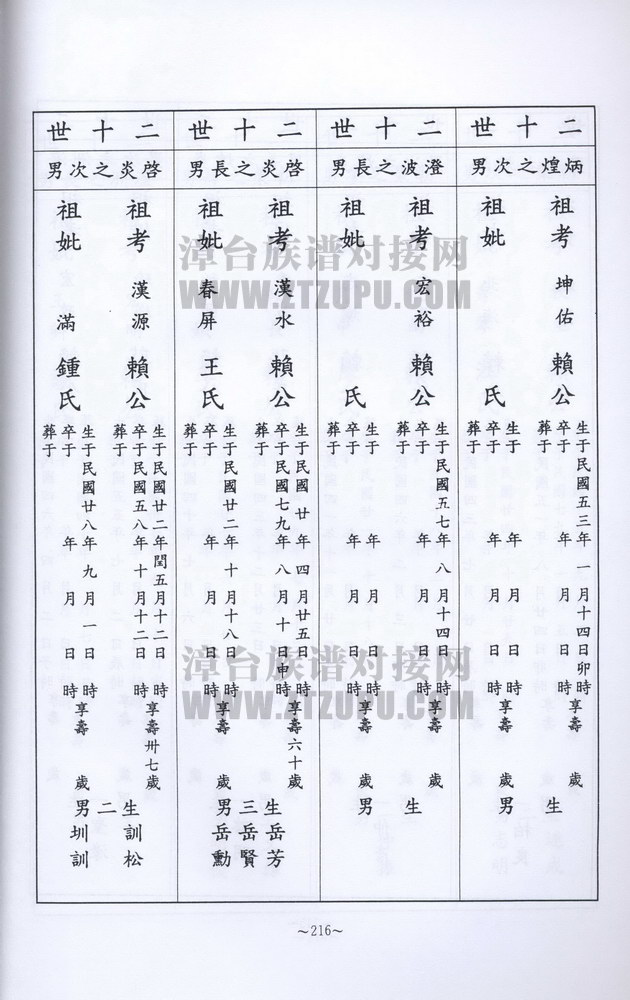 二十世
炳煌之次男
祖考 坤佑 賴公
生于民國五三年一月十四日卯時
卒于 年 月 日 時享壽 歲
葬于
祖妣 氏
生于 年 月 日 時
卒于 年 月 日 時享壽 歲
葬于
生 男
二十世
澄波之長男
祖考 宏裕 賴公
生于民國五七年八月十四日 時
卒于 年 月 日 時享壽 歲
葬于
祖妣 氏
生于 年 月 日 時
卒于 年 月 日 時享壽 歲
葬于
生 男
二十世
啓炎之長男
祖考 漢水 賴公
生于民國廿年四月廿五日 時
卒于民國七九年八月十日申時享壽六十歲
葬于
祖妣 春屏 王氏
生于民國廿二年十月十八日 時
卒于 年 月 日 時享壽 歲
葬于
生三男
岳芳
岳賢
岳勳
二十世
啓炎之次男
祖考 漢源 賴公
生于民國廿二年閏五月十二日 時
卒于民國五八年十月十二日 時享壽卅七歲
葬于
祖妣 滿 鍾氏
生于民國廿八年九月一日 時
卒于 年 月 日 時享壽 歲
葬于
生二男
訓松
圳訓
漳台族谱对接网
WWW.ZTZUPU.COM
漳台族谱对接网
WWW.ZTZUPU.COM
~216~